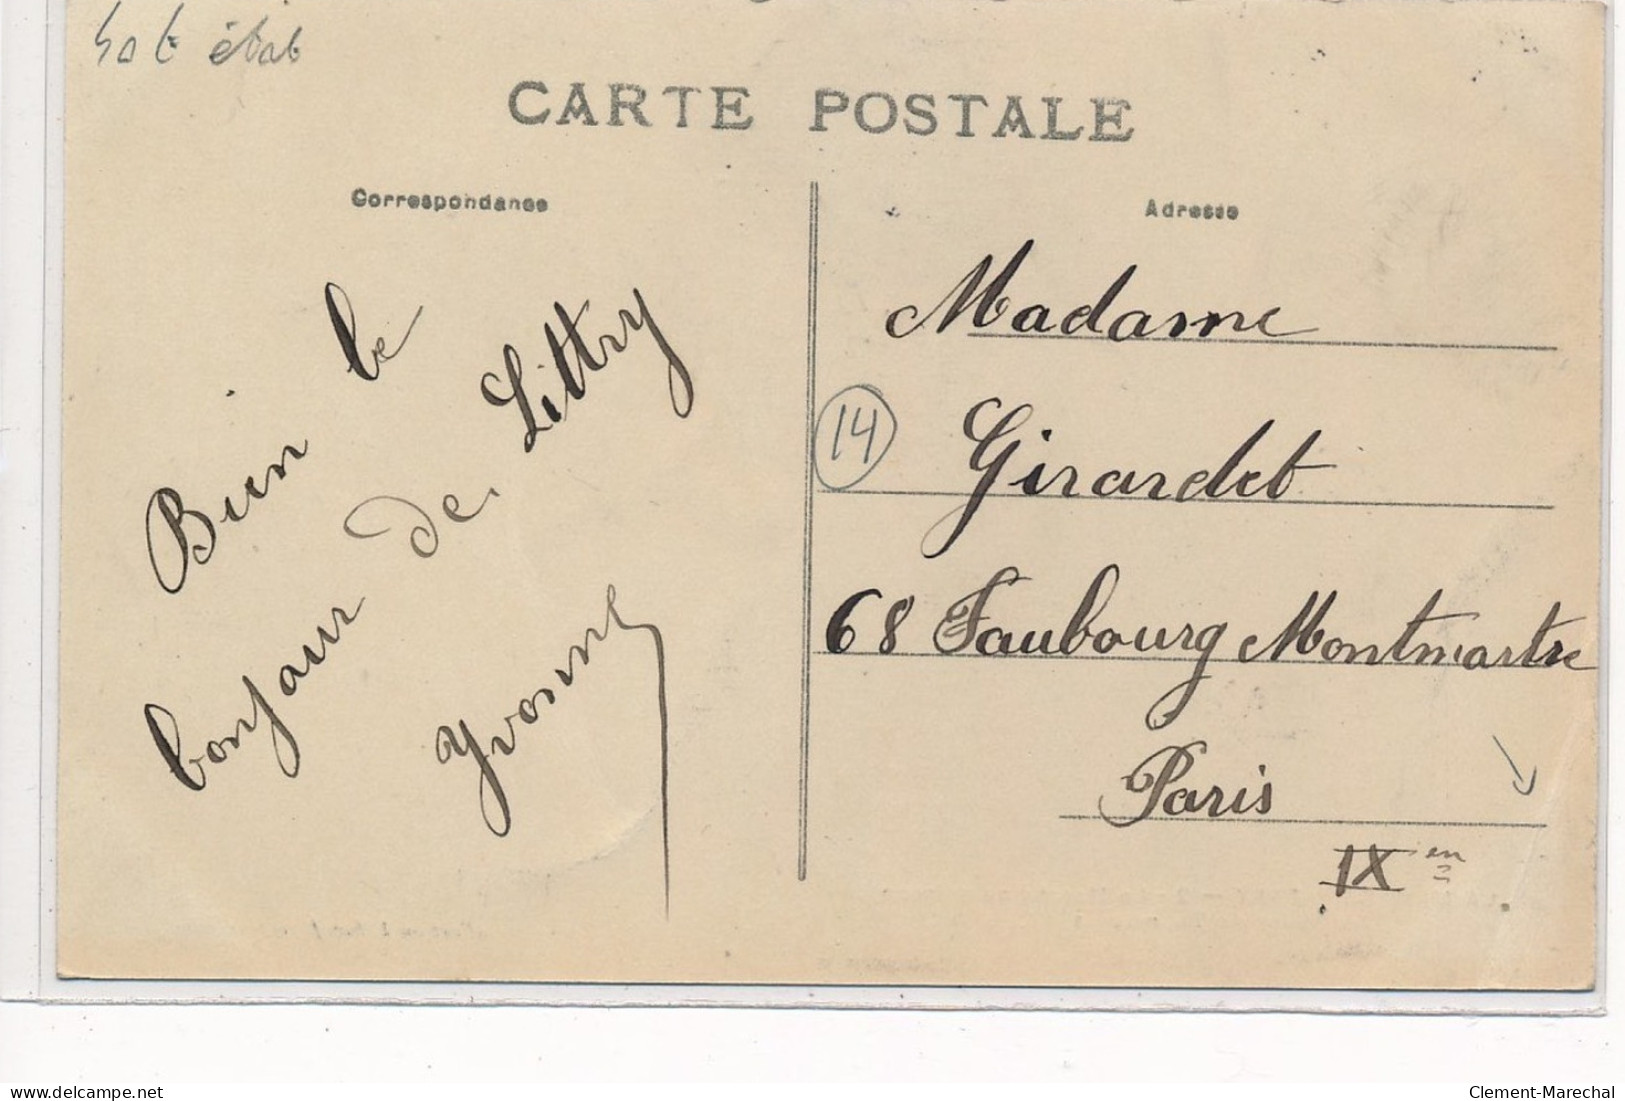 état
CARTE POSTALE
Correspondance
Adresse
Bien le
bonjour de Littry
Yvonne
Madame
14
Girardet
68 Faubourg Montmartre
Paris
IX en
Clement-Marechal
www.delcampe.net